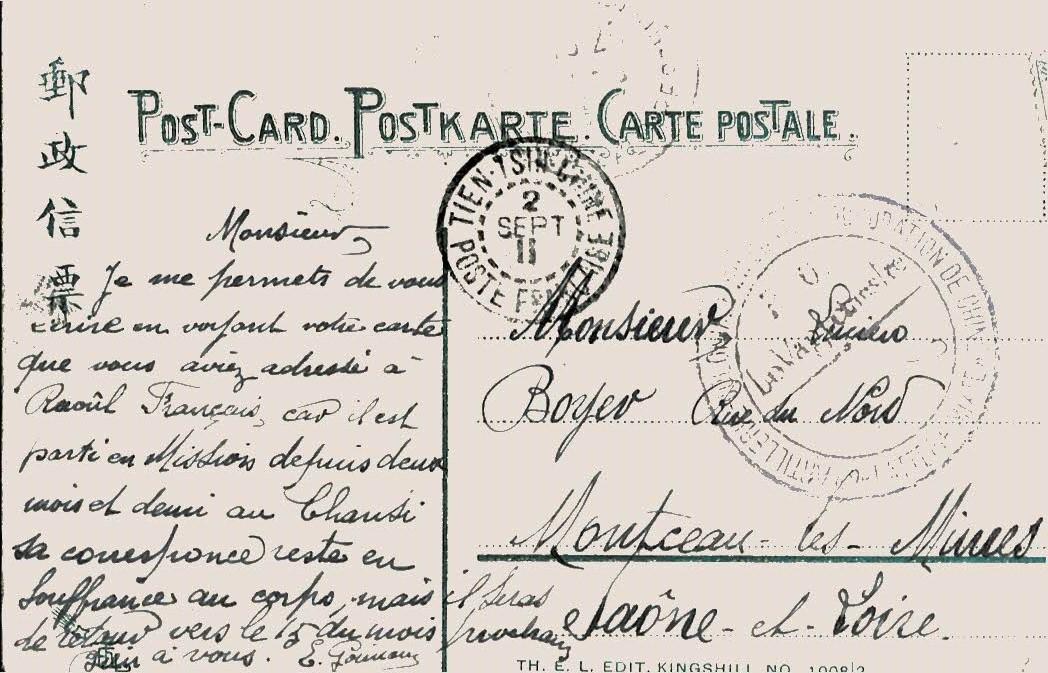 郵政信票
POST-CARD. POSTKARTE. CARTE POSTALE.
TIEN-TSIN-CHINE
2
SEPT
11
POSTE FRANÇAISE
Monsieur
Je me permets de vous
écrire en voyant votre carte
que vous aviez adressé à
Raoûl Français, car il est
parti en Mission depuis deux
mois et demi au Chansi
sa corresponce reste en
Souffrance au corps, mais il seras
de retour vers le 15 du mois prochain
à vous. E.
Monsieur Lucien
Boyer Rue du Nord
Montceau-les-Mines
Saône-et-Loire.
OCCUPATION DE CHINE
ARTILLERIE
Le Vaguemestre
TH. E. L. EDIT. KINGSHILL NO. 1008/2